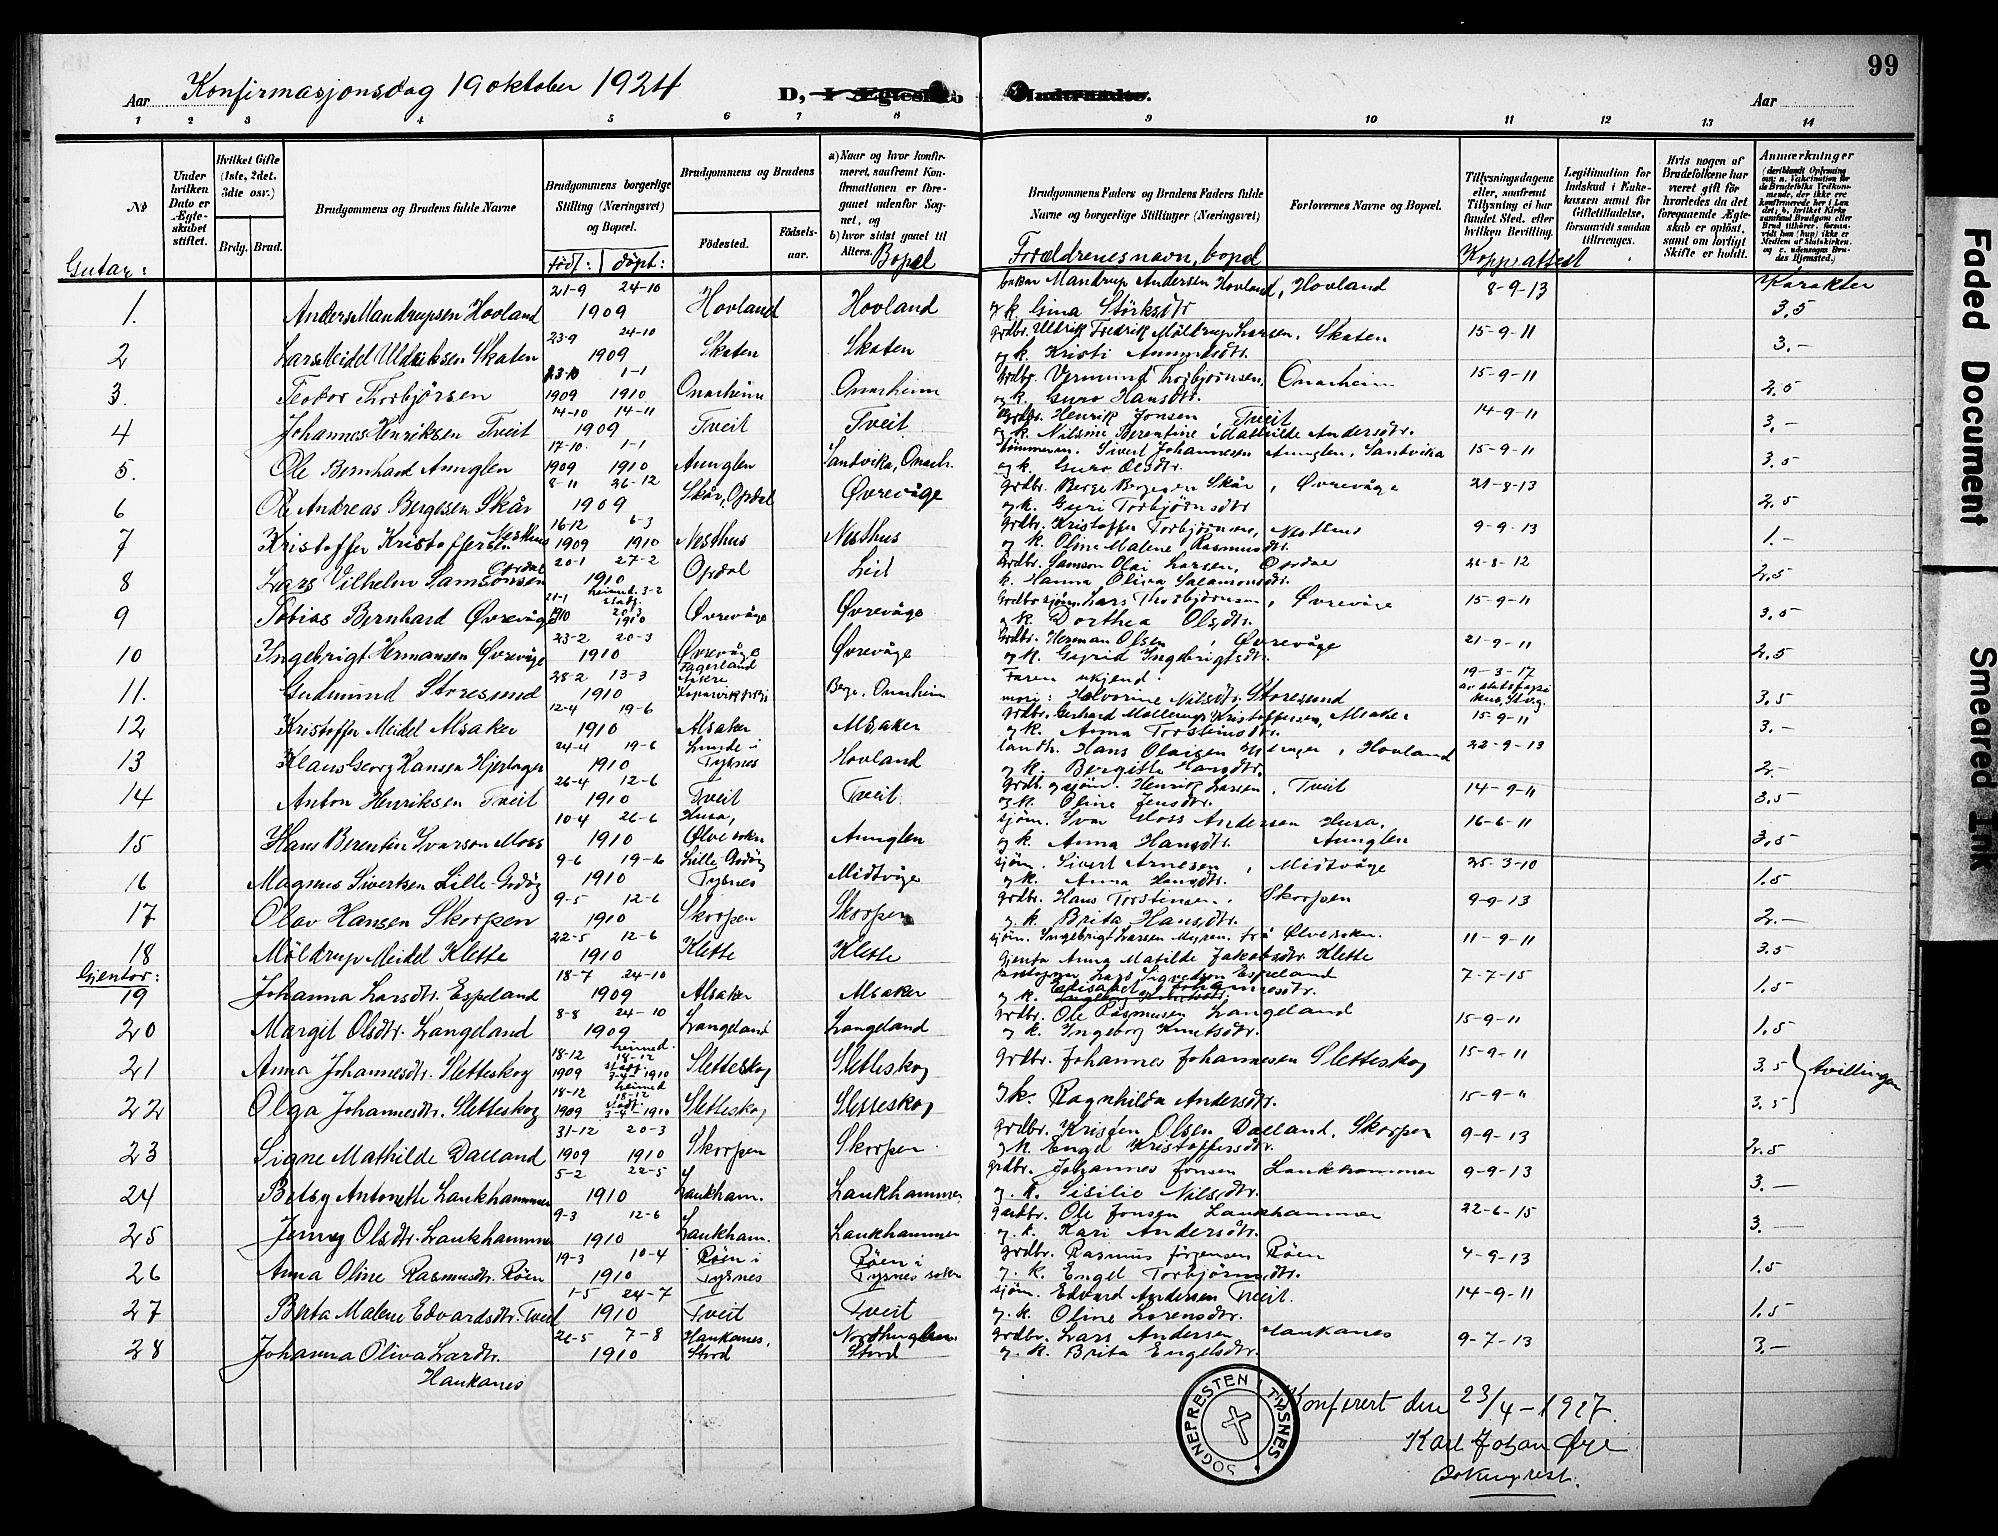 99
Aar Konfirmasjonsdag 19 oktober 1924
D, I Ægteskab
Aar
1 2 3 4 5 6 7 8 9 10 11 12 13 14
No
Under hvilken Dato er Ægteskabet stiftet.
Hvilket Gifte (1ste, 2det, 3die osv.)
Brdg. Brud.
Brudgommens og Brudens fulde Navne
Brudgommens borgerlige Stilling (Næringsvei) og Bopæl.
født: døpt:
Brudgommens og Brudens
Fødested. Fødselsaar.
a) Naar og hvor konfirmeret, saafremt Konfirmationen er foregaaet udenfor Sognet, og
b) hvor sidst gaaet til Alters.
Bopæl
Brudgommens Faders og Brudens Faders fulde Navne og borgerlige Stillinger (Næringsvei)
Forældrenes navn, bopæl
Forlovernes Navne og Bopæl.
Tillysningsdagene eller, saafremt Tillysning ei har fundet Sted, efter hvilken Bevilling.
Koppeattest
Legitimation for Indskud i Enkekassen samt for Giftetilladelse, forsaavidt saadan tiltrenges.
Hvis nogen af Brudefolkene har været gift før hvorledes da det foregaaende Ægteskab er opløst, samt om lovligt Skifte er holdt.
Anmærkninger
Karakter
Gutar:
1. Anders Mandrupsen Hovland 21-9 24-10 1909 Hovland Hovland Mandrup Andersen Hovland, Hovland og k. Gina Størksdtr 8-9-13 3,5
2 Lars Meidel Uldriksen Skaten 23-9 24-10 1909 Skaten Skaten grdbr. Uldrik Fredrik Møldrup Larsen, Skaten og k. Kristi 15-9-11 3.-
3. Teodor Thorbjørsen 23-10 1-1 1909 1910 Onarheim Onarheim Grdbr. Vermund Thorbjørnsen, Onarheim og k. Guro Hansdtr. 15-9-11 2,5
4 Johannes Henriksen Tveit 14-10 14-11 1909 Tveit Tveit Grdbr. Henrik Jonsen Tveit og k. Nilsine Berentine Mathilde Andersdtr. 14-9-11 3.-
5. Ole Bernhard Anuglen 17-10. 1-1 1909 1910 Anuglen Sandvika, Onarh. Sivert Johannesen Anuglen, Sandvika og k. Guro Olsdtr. 15-9-11 3.5
6 Ole Andreas Bergesen Skår 8-11 26-12 1909 Skår, Opdal Øvrevåge grdbr. Berge Bergesen Skår, Øvrevåge og k. Guri Torbjørnsdtr 21-8-13 2,5
7 Kristoffer Kristoffersen Nesthus 16-12 6-3 1909 1910 Nesthus Nesthus grdbr. Kristoffer Torbjørnsen, Nesthus og k. Oline Malene Rasmusdtr. 9-9-13 1.-
8 Lars Vilhelm Samsonsen Opdal 20-1 27-2 1910 Opdal Leit Grdbr. Samson Olai Larsen, Opdal k. Hanna Oliva Salamonsdtr. 2,5
9 Tobias Bernhard Øvrevåge 21-1 heimed. 3-2 stadf. 20-3 1910 1910 Øvrevåge Øvrevåge Lars Thorbjørnsen, Øvrevåge og k. Dorthea Olsdtr. 15-9-11 3.5
10 Ingebrigt Hermansen Øvrevåge 23-2 20-3 1910 Øvrevåge Øvrevåge Grdbr. Herman Olsen, Øvrevåge og k. Gyrid Ingebrigtsdtr. 21-9-11 2.5
11. Gudmund Storesund 28-2 13-3 1910 Fagerland Berge, Onarheim Faren ukjend. mor: Halvorine Nilsdtr. Storesund 19-3-17 3,5
12 Kristoffer Meidel Alsaker 12-4 19-6 1910 Alsaker Alsaker grdbr. Gerhard Møllerup Kristoffersen, Alsaker og k. Anna Torsteinsdtr. 15-9-11 3.-
13 Klaus Georg Hansen Hjertager 24-4 19-6 1910 Lunde i Tysnes Hovland landh. Hans Olaisen, Hovland og k. Bergitte Hansdtr. 22-9-13 2.-
14 Anton Henriksen Tveit 26-4 12-6 1910 Tveit Tveit grdbr. og sjøm. Henrik Larsen, Tveit og k. Oline Jensdtr. 14-9-11 3.5
15 Hans Berentin Ivarson Moss 10-4 26-6 1910 Husa, Ølve sokn Anuglen sjøm. Ivar Moss Andersen Husa, Anuglen og k. Anna Hansdtr. 16-6-11 3,5
16 Magnus Sivertsen Lille-Godøy 9-6 19-6 1910 Lille-Godøy Tysnes Midtvåge sjøm. Sivert Arnesen, Midtvåge og k. Anna Hansdtr. 25-3-10 1.5
17 Olav Hansen Skorpen 9-5 12-6 1910 Skorpen Skorpen grdbr. Hans Torstensen, Skorpen og k. Brita Hansdtr. 9-9-13 2.-
18 Møldrup Meidel Klette 22-5 12-6 1910 Klette Klette sjøm. Ingebrigt Larsen frå Ølve sokn. Gjenta Anna Matilde Jakobsdtr Klette 11-9-11 3.5
Gjentor:
19 Johanna Larsdtr. Espeland 18-7 24-10 1909 Alsaker Alsaker Lars Sigvedson Espeland og k. Elisabet Johannesdtr. 7-7-15 1.5
20 Margit Olsdtr. Langeland 8-8 24-10 1909 Langeland Langeland Grdbr. Ole Rasmusen Langeland og k. Ingeborg Knutsdtr. 15-9-11 1,5
21 Anna Johannesdtr. Sletteskog 18-12 heimed. 18-12 stadf. 3-4-1910 1909 Sletteskog Sletteskog grdbr. Johannes Johannesen Sletteskog 15-9-11 3.5 tvillingar
22 Olga Johannesdtr. Sletteskog 18-12 heimed 18-12 stadf. 3-4-1910 1909 Sletteskog Sletteskog og k. Ragnhilda Andersdtr. 15-9-11 3.5
23 Signe Mathilde Dalland 31-12 20-3 1909 1910 Skorpen Skorpen grdbr. Kristen Olsen Dalland, Skorpen og k. Engel Kristoffersdtr. 9-9-13 2.5
24 Betsy Antonette Laukhammer 5-2 22-5 1910 Laukham. Laukhammer grdbr. Johannes Jonsen Laukhammer og k. Sisilie Nilsdtr. 9-9-13 3.-
25 Jenny Olsdtr. Laukhammer 9-3 12-6 1910 Laukham. Laukhammer gardbr. Ole Jonsen Laukhammer og k. Kari Andersdtr. 22-6-15 3.-
26 Anna Oline Rasmusdtr. Røen 19-3 10-4 1910 Røen i Tysnes Røen i Tysnes sokn grdbr. Rasmus Jørgensen Røen og k. Engel Torbjørnsdtr. 4-9-13 1.5
27 Berta Malene Edvardsdtr. Tveit 1-5 24-7 1910 Tveit Tveit sjøm. Edvard Andersen Tveit. og k. Oline Larensdtr. 14-9-11 1.5
28 Johanna Oliva Larsdtr. Haukanes 26-5 7-8 1910 Haukanes, Stord Nordhuglen Stord grdbr. Lars Andersen Haukanes og k. Brita Engelsdtr. 9-7-13 3.-
SOGNEPRESTEN I TYSNES
Konferert den 23/4-1927.
Karl Johan Øye
sokneprest.
Faded Document
Smeared Ink